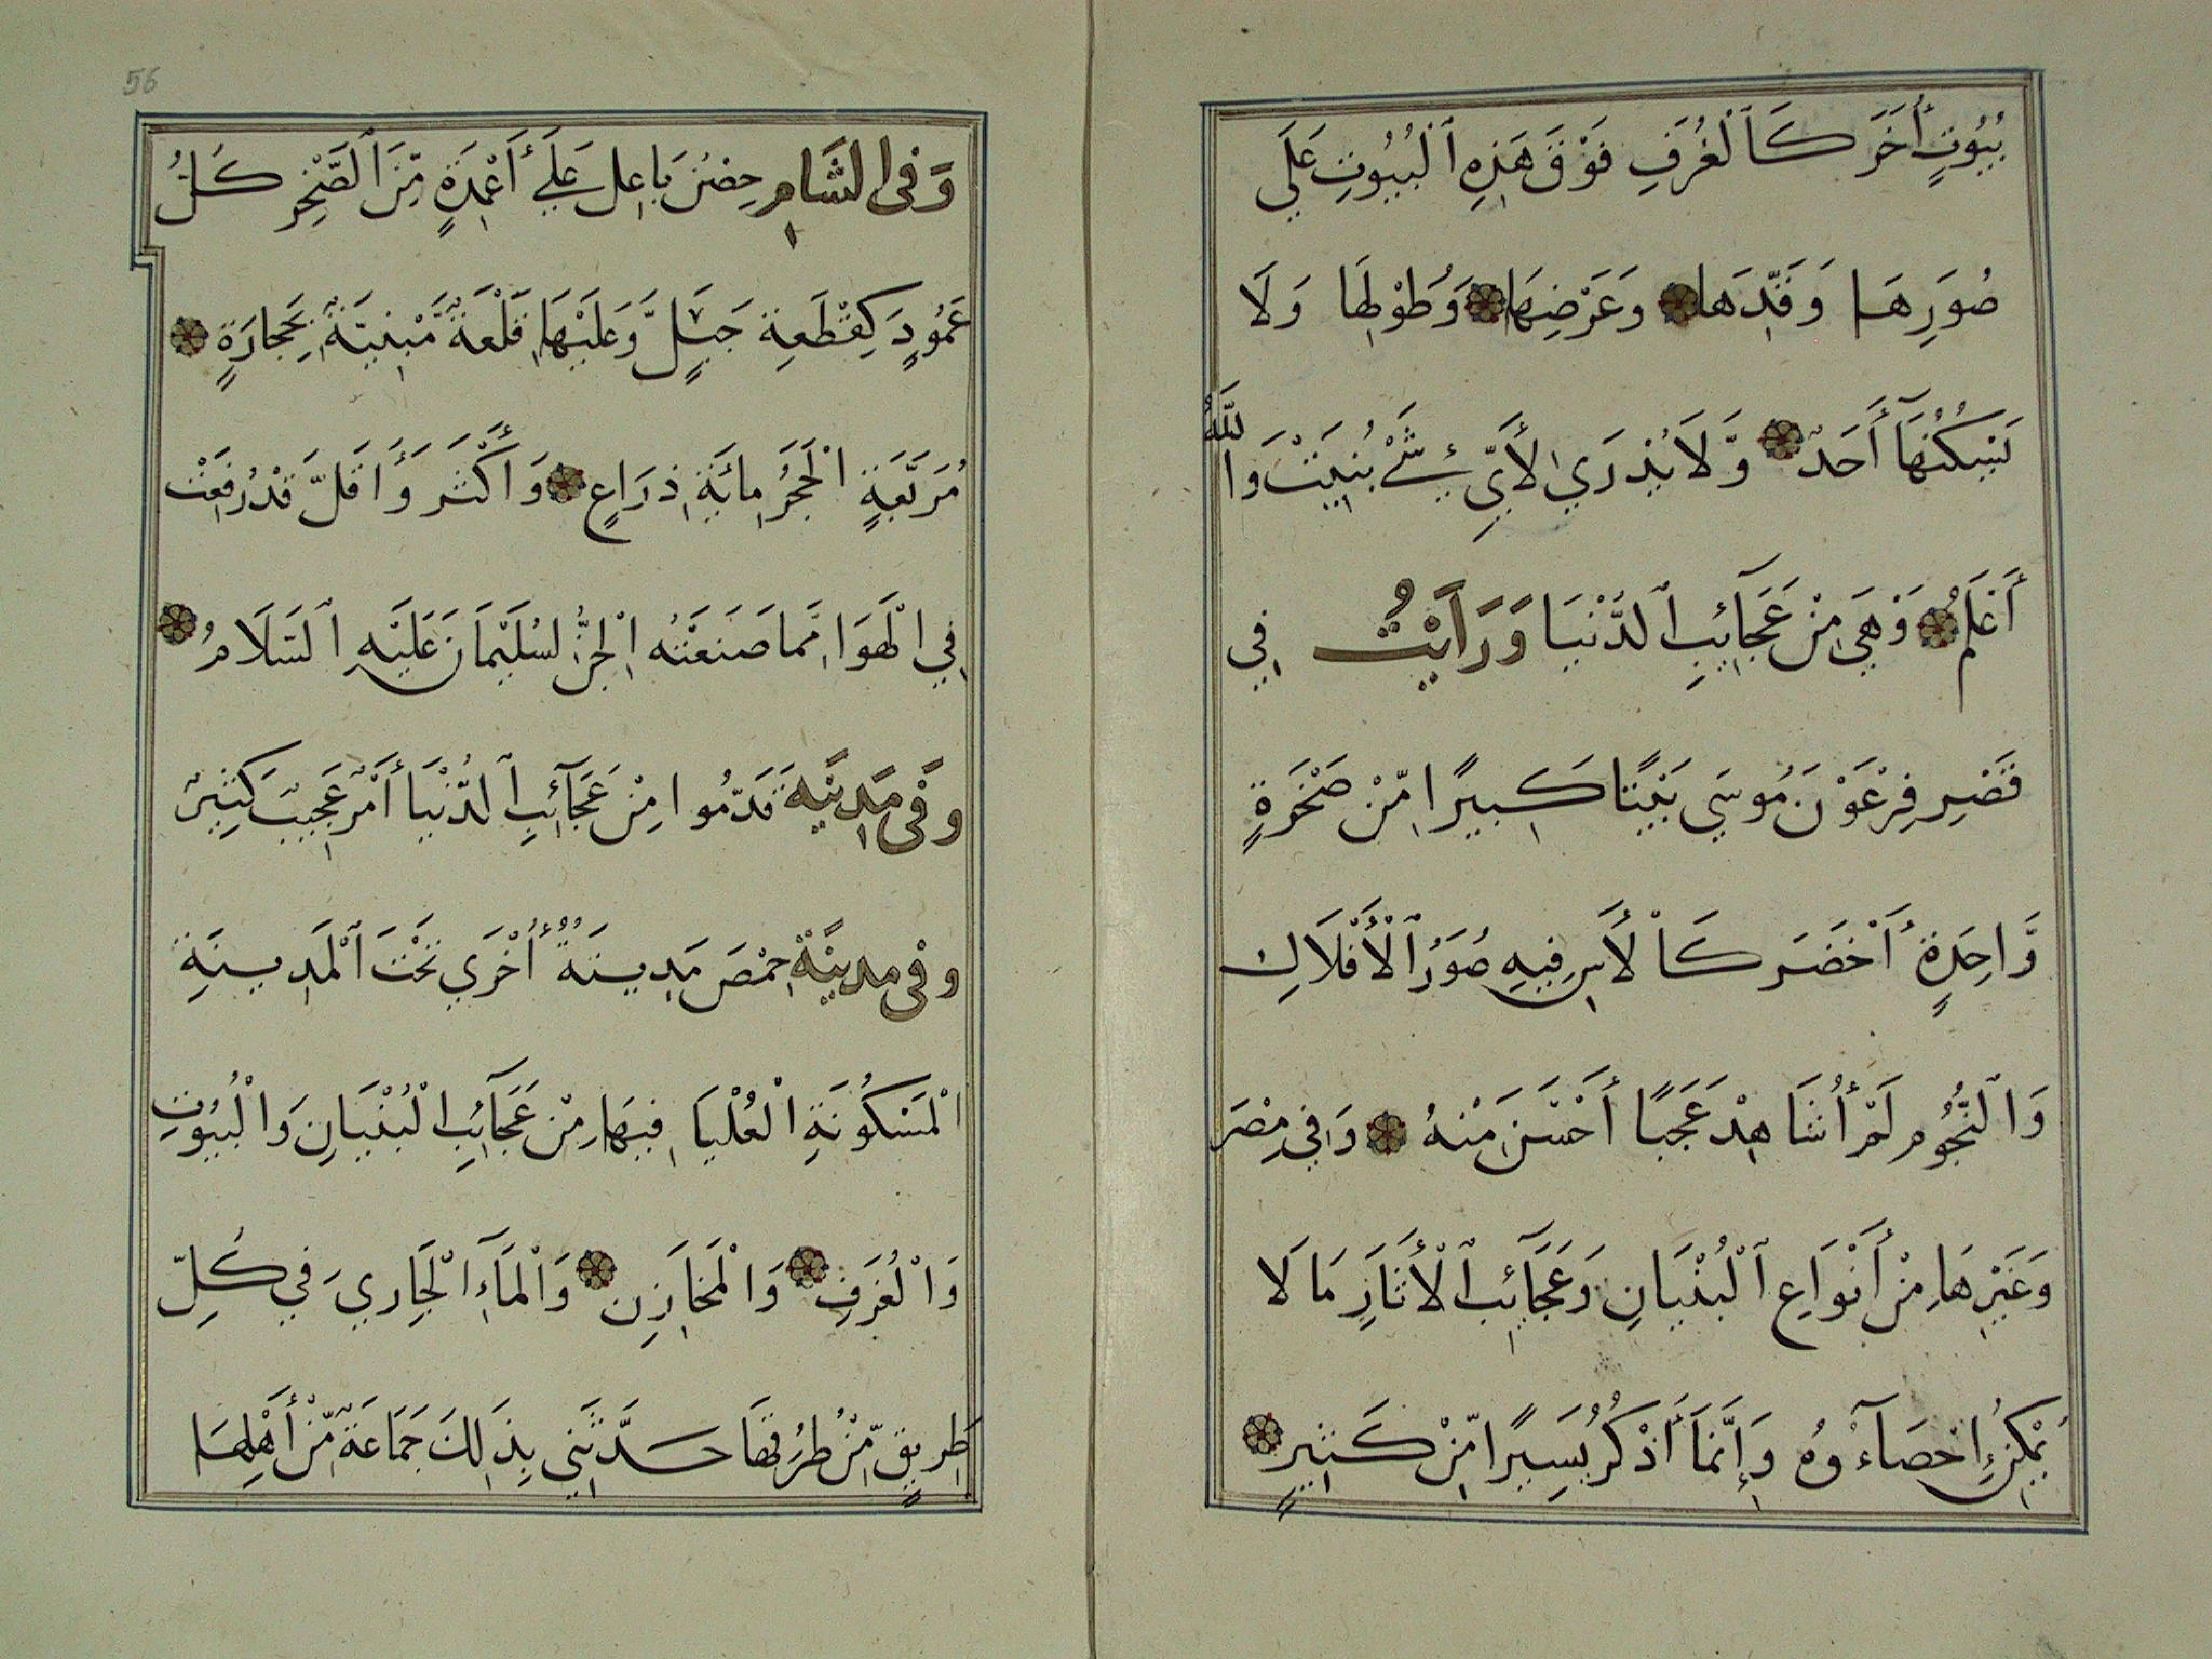 بُيُوتٍ أُخَرَ كَالْغُرَفِ فَوْقَ هَذِهِ الْبُيُوتِ عَلَي
صُوَرِهَا وَقَدِّهَا وَعَرْضِهَا وَطُوْلِهَا وَلَا
يَسْكُنُهَآ أَحَدٌ وَّلَا يُدْرَي لِأَيِّ شَيْءٍ بُنِيَتْ وَاللَّهُ
أَعْلَمُ وَهِيَ مِنْ عَجَآئِبِ الدُّنْيَا وَرَاَيْتُ فِي
قَصْرِ فِرْعَوْنَ مُوسَي بَيْتًا كَبِيرًا مِّنْ صَخْرَةٍ
وَّاحِدَةٍ أَخْضَرَ كَالْأَسِ فِيهِ صُوَرُ الْأَفْلَاكِ
وَالنُّجُومِ لَمْ أُشَاهِدْ عَجَبًا أَحْسَنَ مِنْهُ وَفِي مِصْرَ
وَغَيْرِهَا مِنْ أَنْوَاعِ الْبُنْيَانِ وَعَجَآئِبِ الْأَثَارِ مَا لَا
يُمْكِنُ إِحْصَآءُوهُ وَإِنَّمَا أَذْكُرُ يَسِيرًا مِّنْ كَثِيرٍ
56
وَفِى الشَّامِ حِصْنُ بَاعِل عَلَي أَعْمِدَةٍ مِّنَ الصَّخْرِ كُلُّ
عَمُودٍ كَقِطْعَةِ جَبَلٍ وَّعَلَيْهَا قَلْعَةٌ مَّبْنِيَّةٌ بِحِجَارَةٍ
مُرَبَّعَةٍ الْحَجَرُ مِائَةِ ذِرَاعٍ وَأَكْثَرَ وَأَقَلَّ قَدْ رُفِعَتْ
فِي الْهَوَا مِمَّا صَنَعَتْهُ الْجِنُّ لِسُلَيْمَانَ عَلَيْهِ السَّلَامُ
وَفِى مَدِينَةِ قَدَّمُوا مِنْ عَجَآئِبِ الدُّنْيَا أَمْرٌ عَجِيبٌ كَثِيرٌ
وفى مدينَةِ حِمْصَ مَدِينَةٌ أُخْرَي تَحْتَ الْمَدِينَةِ
الْمَسْكُونَةِ الْعُلْيَا فِيهَا مِنْ عَجَآئِبِ الْبُنْيَانِ وَالْبُيُوتِ
وَالْغُرَفِ وَالْمَخَازِنِ وَالْمَآءِ الْجَارِي فِي كُلِّ
طَرِيقٍ مِّنْ طُرُقِهَا حَدَّثَنِي بِذَالِكَ جَمَاعَةٌ مِّنْ أَهْلِهَا